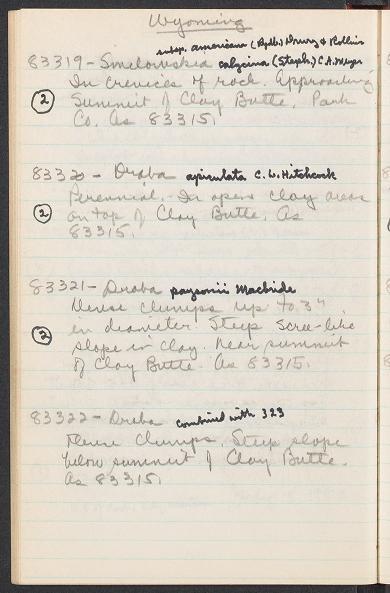 Wyoming
subsp. americana (Rydb.) Drury & Rollins
83319 - Smelowskia calycina (Steph.) C.A. Meyer
In crevices of rock. Approaching
② Summit of Clay Butte, Park
Co. As 83315.
83320 - Draba apiculata C. L. Hitchcock
Perennial. In open clay areas
② on top of Clay Butte. As
83315.
83321 - Draba paysonii Macbride
Dense clumps up to 3"
② in diameter. Steep scree-like
slope in clay. Near summit
of Clay Butte. As 83315.
83322 - Draba combined with 323
Dense clumps. Steep slope
below summit of Clay Butte.
As 83315.